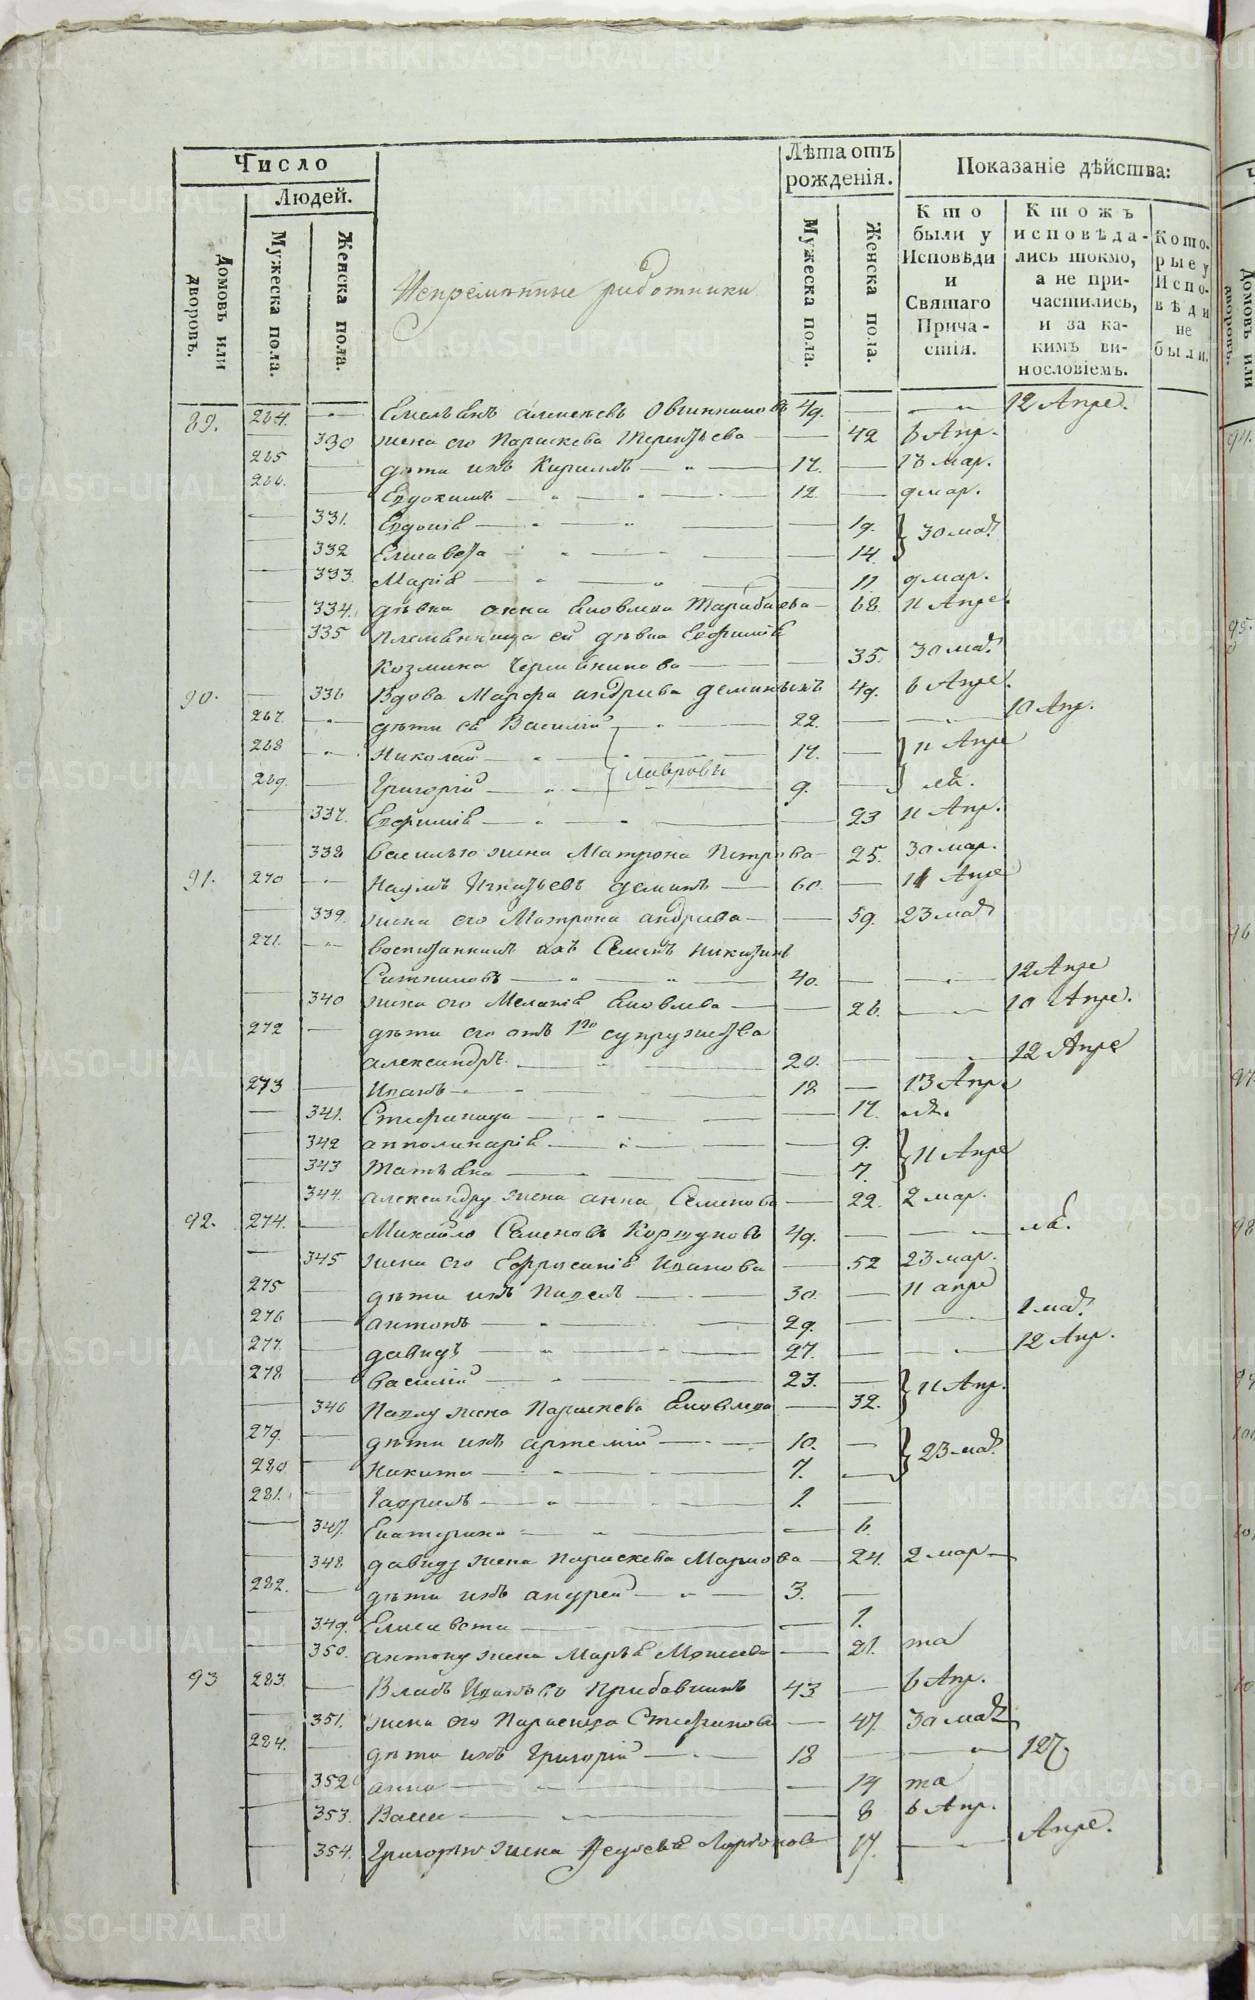 Число
Людей.
Домовъ или дворовъ.
Мужеска пола.
Женска пола.
Непремѣнные работники
Лѣта отъ рожденія.
Мужеска пола.
Женска пола.
Показаніе дѣйства:
Кто были у Исповѣди и Святаго Причастія.
Ктожъ исповѣдались токмо, а не причастились, и за какимъ винословіемъ.
Которые у Исповѣди не были.
89. 264. Емельянъ Алексѣевъ Овчинниковъ 49. 12 Апре.
330 жена его Параскева Терентьева 42 6 Апр.
265 дѣти ихъ Кирилъ 17. 13 мар.
266. Евдокимъ 12. 9 мар.
331. Евдокія 19. 30 мар.
332 Елисавета 14.
333. Марія 11. 9 мар.
334. дѣвка Анна Яковлева 68. 11 Апре.
335 племянница ей дѣвка Евфимія
Козмина 35. 30 мар.
90. 336 Вдова Марфа Андрѣева 49. 6 Апре.
267. дѣти ея Василій 22. 10 Апр.
268 Николай 17. 11 Апре
269. Григорій Лавровы 9.
337. Евфимія 23 11 Апр.
338 Василью жена Матрона Петрова 25. 30 мар.
91. 270 Наумъ Игнатьевъ Деминъ 60. 11 Апре
339. жена его Матрона Андрѣева 59. 23 мар
271. воспитанникъ ихъ Семенъ Никитинъ
Ситниковъ 40. 12 Апре
340 жена его Меланія Яковлева 26. 10 Апре.
272 дѣти его отъ 1го супружества
Александръ 20. 12 Апре
273 Иванъ 12 13 Апре
341. Стефанида 17.
342 Апполинарія 9. 11 Апре
343 Татьяна 7.
344. Александру жена Анна Семенова 22. 2 мар.
92. 274. Михайло Семеновъ Коршуновъ 49.
345 жена его Ефросинія Иванова 52 23 мар.
275 дѣти ихъ Павелъ 30. 11 апре
276 Антонъ 29. 1 мар.
277. Давидъ 27. 12 Апр.
278 Василій 23. 11 Апр.
346 Павлу жена Параскева Яковлева 32.
279. дѣти ихъ Артемій 10. 23 мар.
280 Никита 7.
281. Гаврилъ 1.
347. Екатерина 6.
348 Давиду жена Параскева Маркова 24. 2 мар
282. дѣти ихъ Андрей 3.
349. Елисавета 1.
350. Антону жена Марья Моисеева 21. та
93 283. Иванов Прибавкинъ 43 6 Апр.
351. жена его Параскева Стефанова 47. 30 мар
284. дѣти ихъ Григорій 18 12
352 Анна 14 та
353. 8 6 Апр.
354. Григорью жена 17. Апре.